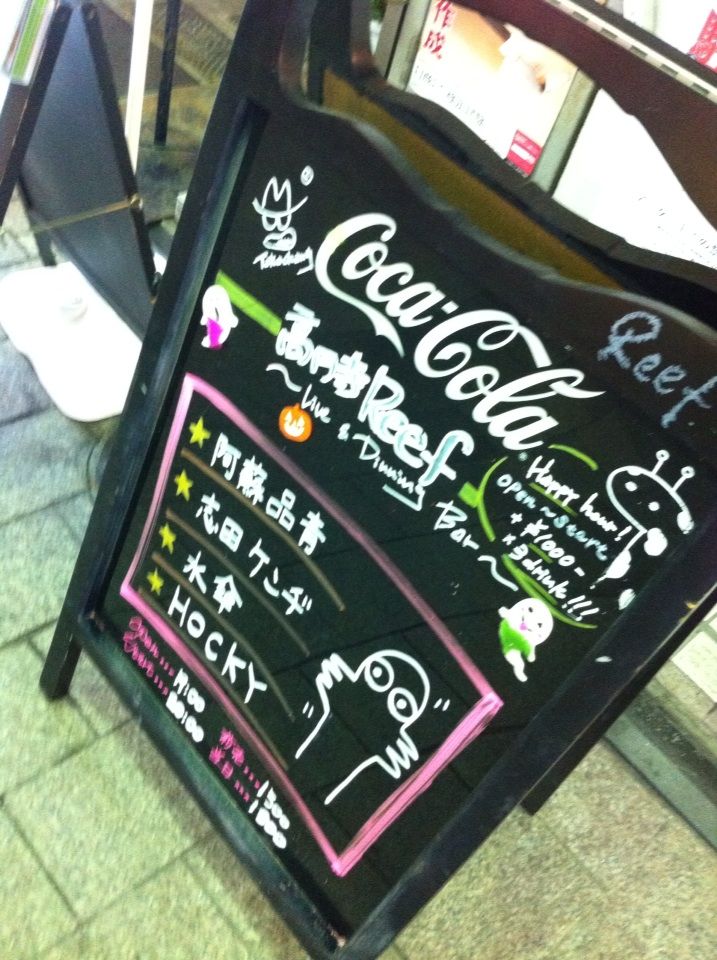 作成
Coca-Cola
Reef
高円寺Reef
～Live & Dinning Bar～
Happy hour!
open～start
+ ¥1000-
× 3drink!!!
阿蘇品青
志田ケンヂ
水傘
HOCKY
open...19:00
start...20:00
前売...1500
当日...1800